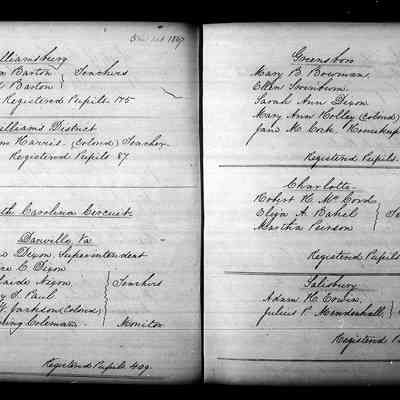 1867
illiamsburg
Barton
Barton } Teachers
Registered Pupils 175
illiams District
Harris (Colored) Teacher
Registered Pupils 87
th Carolina Circuit
Danville, Va
Dixon Superintendent
C. Dixon
aide Nixon,
S. Paul } Teachers
Jackson (Colored)
Coleman, Monitor
Registered Pupils 409.
Greensboro
Mary B. Bowman,
Ellen Swinburn,
Sarah Ann Dixon
Mary Ann Holley (Colored)
Jane M. Cock, Housekeep
Registered Pupils.
Charlotte
Robert H. McCord
Eliza A.
Martha Pearson
Registered Pupils
Salisbury
Adam H. Erwin,
Julius P. Mendenhall,
Registered P